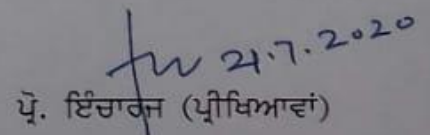 21.7.2020
ਪ੍ਰੋ. ਇੰਚਾਰਜ (ਪ੍ਰੀਖਿਆਵਾਂ)